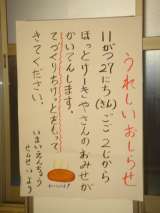 うれしいおしらせ
11がつ27にち(きん)ごご2じから
ほっとけーきやさんのおみせが
かいてんします。
てづくりちけっとをもって
きてください。
いまいえんちょう
せんせいより